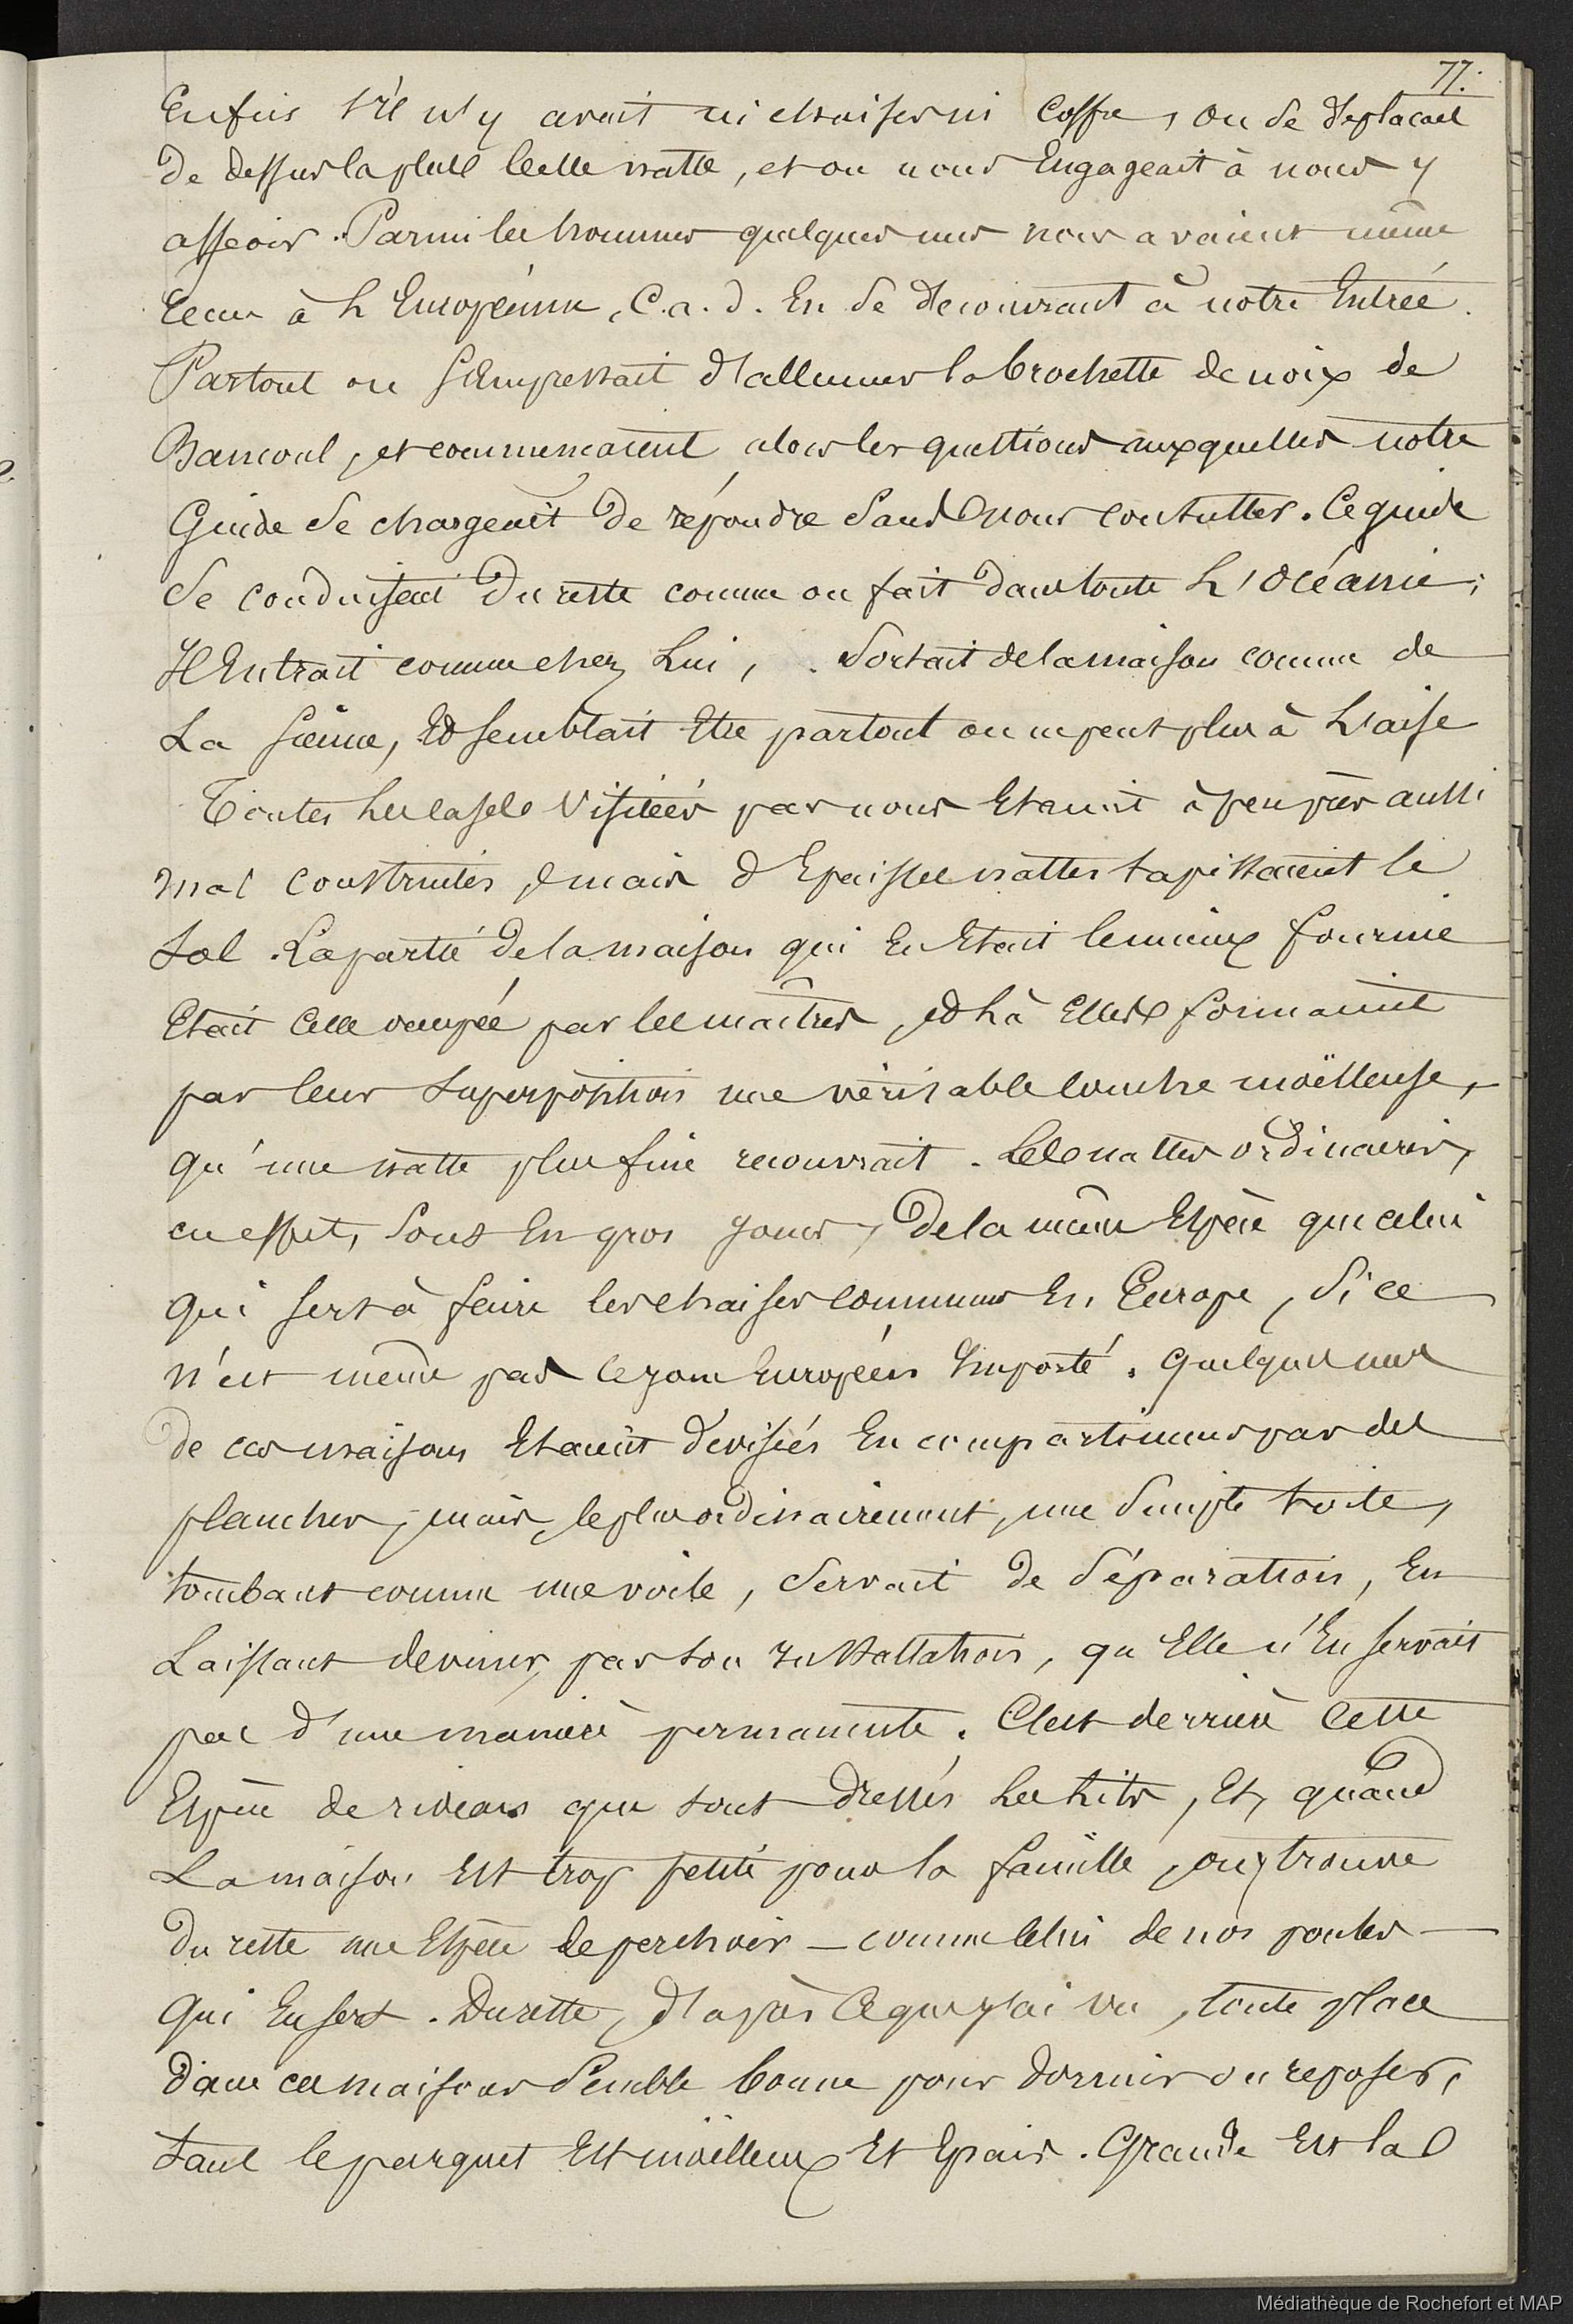 77.
Enfin s'il n'y avait ni chaises ni coffre, on se deplacait
de dessus la plus belle natte, et on nous engageait à nous y
asseoir. Parmi les hommes quelques uns nous avaient même
recu à l'Européenne, C.a.d. en se decouvrant à notre Entrée.
Partout on s'empressait d'allumer la brochette de noix de
Bancoul, et commencaient alors les questions auxquelles notre
Guide se chargeait de répondre sans nous consulter. Ce guide
se conduisait du reste comme on fait dans toute L'Océanie;
Il Entrait comme chez Lui, sortait de la maison comme de
La sienne, Et semblait Etre partout on ne peut plus à L'aise
Toutes Les cases visitées par nous Etaient à peu près aussi
mal construites, mais d'Epaisses nattes tapissaient le
sol. La partie de la maison qui en Etait le mieux fournie
Etait celle occupée par les maîtres, Et Là Elles formaient
par leur superposition une véritable couche moëlleuse,
qu'une natte plus fine recouvrait. Les nattes ordinaires,
en effet, sont En gros joncs, de la même Espèce que celui
qui sert à faire les chaises communes En Europe, si ce
n'est même pas le jonc Européen Importé. Quelques unes
de ces maisons Etaient divisées En compartimens par des
planches, mais, le plus ordinairement, une simple toile,
tombant comme une voile, servait de séparation, En
Laissant deviner, par son Installation, qu'Elle n'En servait
pas d'une manière permanente. C'est derrière cette
Espèce de rideau que sont dressés Les Lits, Et, quand
La maison Est trop petite pour la famille, on y trouve
du reste une Espèce de perchoir — comme celui de nos poules —
qui En sert. Du reste, d'après ce que j'ai vu, toute place
dans ces maisons semble bonne pour dormir ou reposer,
tant le parquet Est moëlleux Et Epais. Grande Est la
Médiathèque de Rochefort et MAP